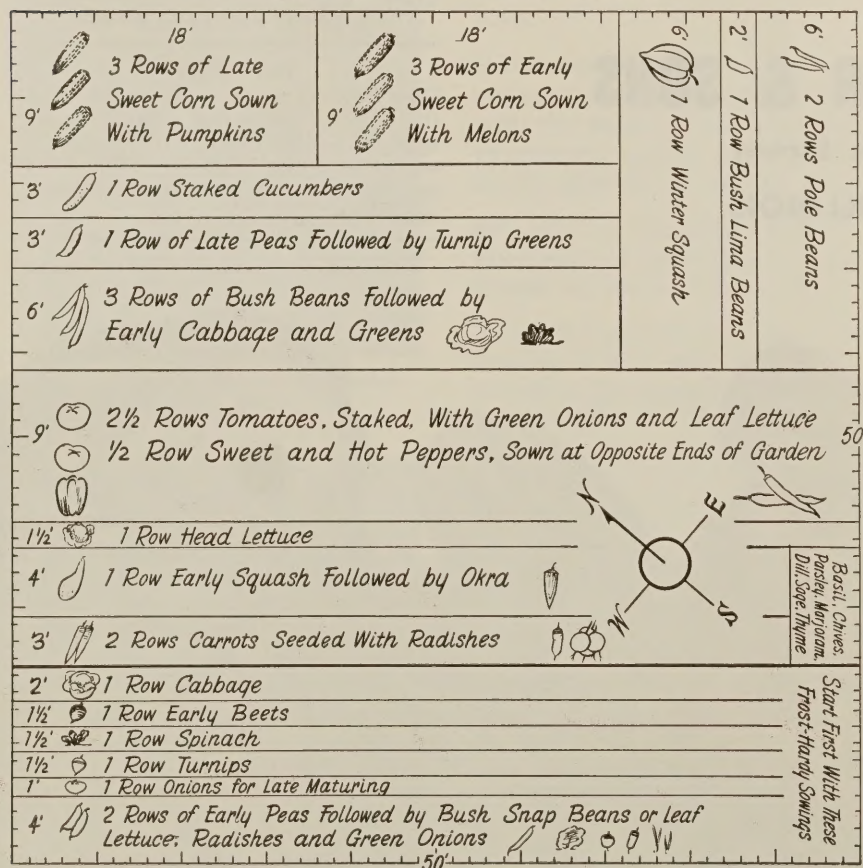 18'
3 Rows of Late
Sweet Corn Sown
With Pumpkins
9'
18'
3 Rows of Early
Sweet Corn Sown
With Melons
9'
6'
1 Row Winter Squash
2'
1 Row Bush Lima Beans
6'
2 Rows Pole Beans
3' 1 Row Staked Cucumbers
3' 1 Row of Late Peas Followed by Turnip Greens
6' 3 Rows of Bush Beans Followed by
Early Cabbage and Greens
9' 2½ Rows Tomatoes, Staked, With Green Onions and Leaf Lettuce
½ Row Sweet and Hot Peppers, Sown at Opposite Ends of Garden
50
1½' 1 Row Head Lettuce
N
E
W
S
4' 1 Row Early Squash Followed by Okra
Basil, Chives,
Parsley, Marjoram,
Dill, Sage, Thyme
3' 2 Rows Carrots Seeded With Radishes
2' 1 Row Cabbage
1½' 1 Row Early Beets
1½' 1 Row Spinach
1½' 1 Row Turnips
1' 1 Row Onions for Late Maturing
4' 2 Rows of Early Peas Followed by Bush Snap Beans or Leaf
Lettuce, Radishes and Green Onions
Start First With These
Frost-Hardy Sowings
50'